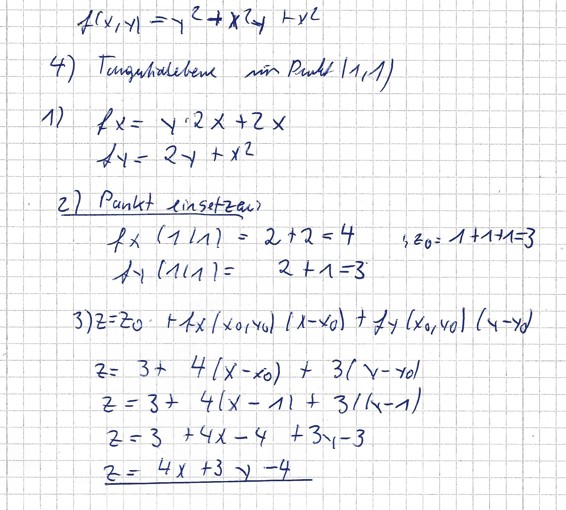 f(x,y) = y² + x²y + x²
4) Tangentialebene im Punkt (1,1)
1) fx = y·2x + 2x
fy = 2y + x²
2) Punkt einsetzen:
fx (1/1) = 2+2 = 4 , z₀ = 1+1+1=3
fy (1/1) = 2+1=3
3) z=z₀ + fx(x₀,y₀) (x-x₀) + fy(x₀,y₀) (y-y₀)
z= 3+ 4(x-x₀) + 3(y-y₀)
z = 3+ 4(x-1) + 3(y-1)
z = 3 +4x-4 +3y-3
z = 4x +3y -4